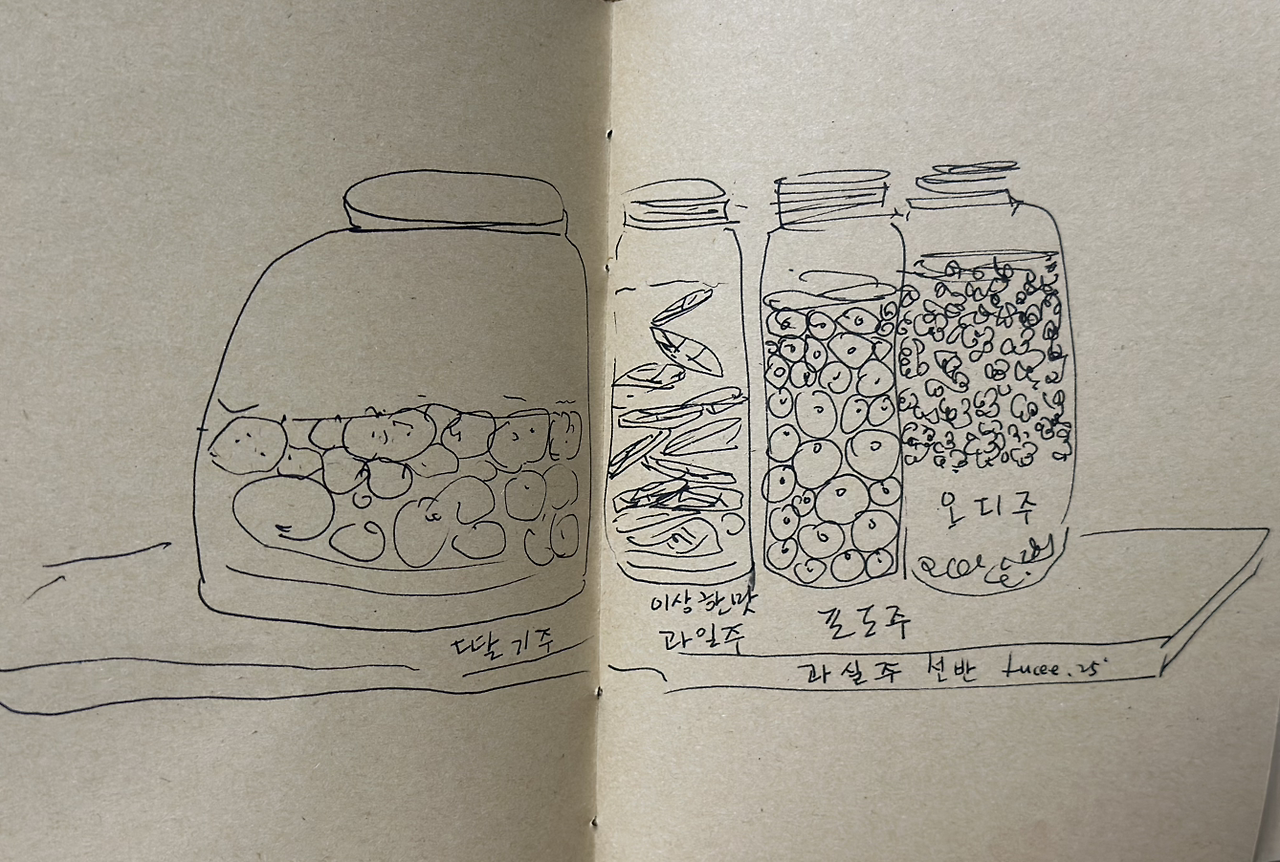 딸기주
이상한맛
과일주
포도주
오디주
과실주 선반 tucee.25'